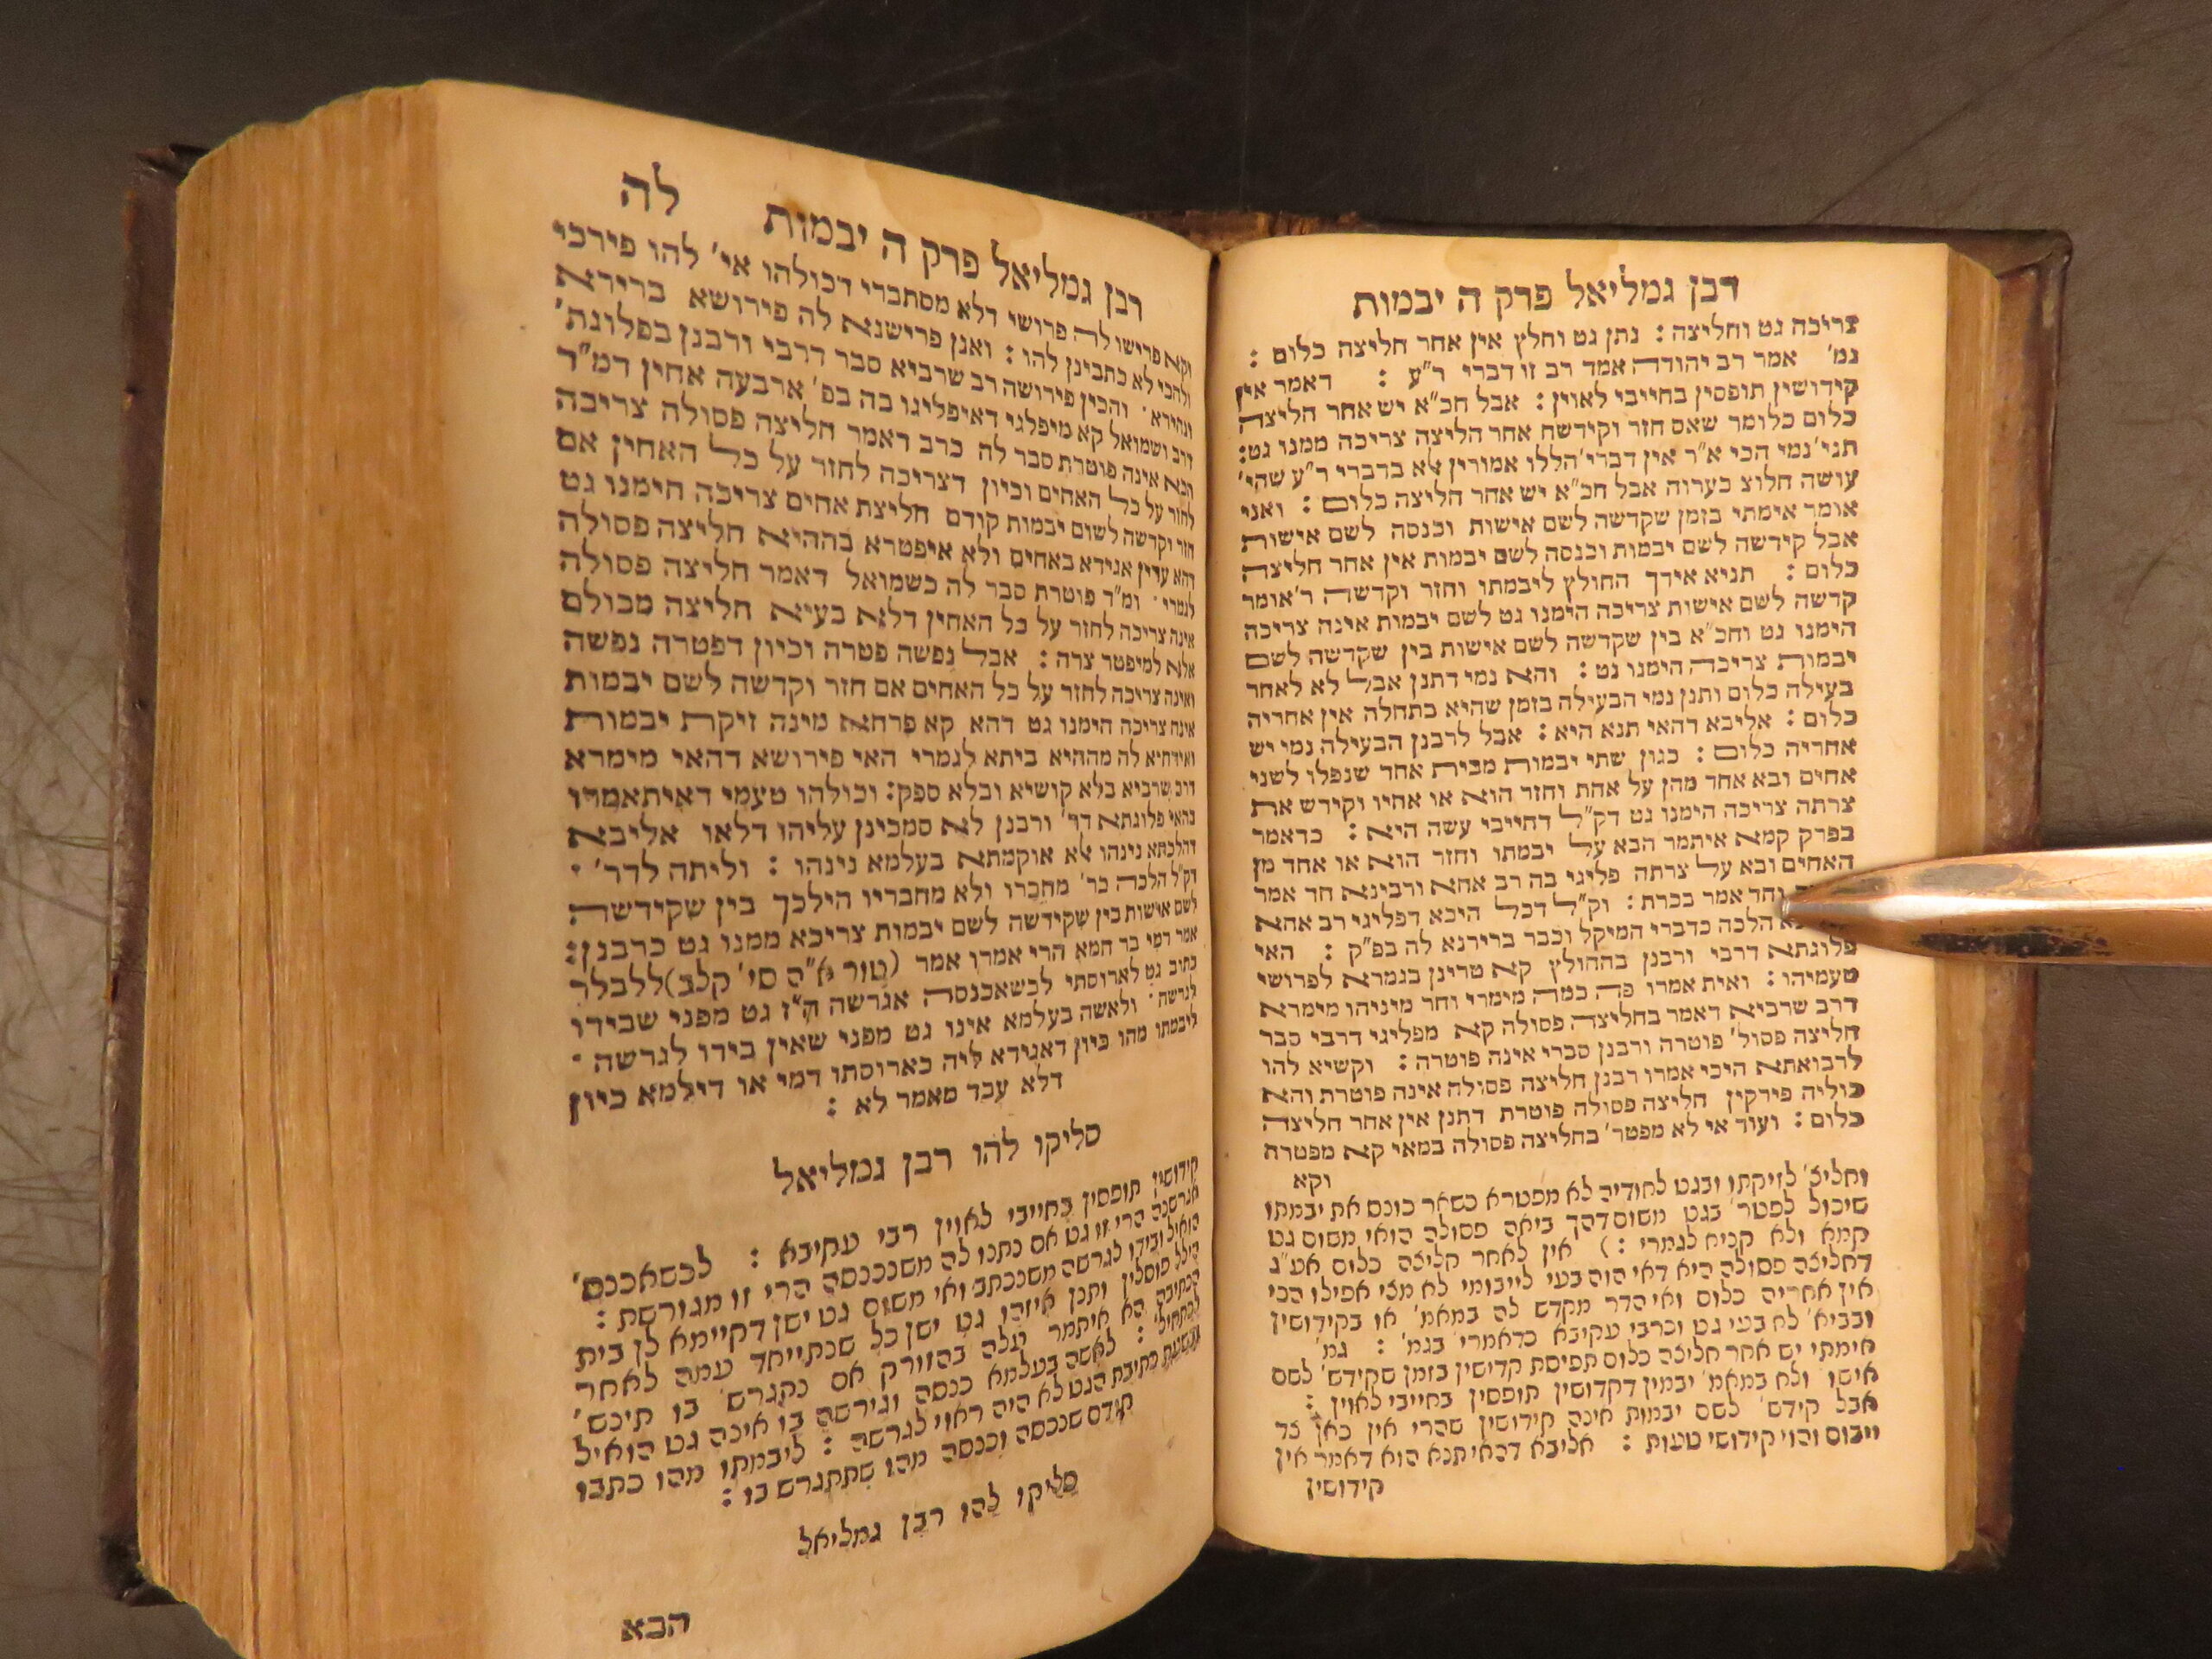 דבן גמליאל פרק ה יבמות
צריכה גט וחליצה : נתן גט וחלץ אין אחר חליצה כלום :
גמ' אמר רב יהודה אמד רב זו דברי ר"ע : דאמר אין
קידושין תופסין בחייבי לאוין : אבל חכ"א יש אחר חליצה
כלום כלומר שאם חזר וקידשה אחר הליצה צריכה ממנו גט:
תני' נמי הכי א"ר אין דברי' הללו אמורין לא בדברי ר"ע שהי'
עושה חלוצ כערוה אבל חכ"א יש אחר חליצה כלום : ואני
אומר אימתי בזמן שקדשה לשם אישות וכנסה לשם אישות
אבל קידשה לשם יבמות וכנסה לשם יבמות אין אחר חליצה
כלום : תניא אידך החולץ ליבמתו וחזר וקדשה ר' אומר
קדשה לשם אישות צריכה הימנו גט לשם יבמות אינה צריכה
הימנו גט וחכ"א בין שקדשה לשם אישות בין שקדשה לשם
יבמות צריכה הימנו גט : והא נמי דתנן אבל לא לאחר
בעילה כלום ותנן נמי הבעילה בזמן שהיא כתחלה אין אחריה
כלום : אליבא דהאי תנא היא : אבל לרבנן הבעילה נמי יש
אחריה כלום : כגון שתי יבמות מבית אחר שנפלו לשני
אחים ובא אחד מהן על אחת וחזר הוא או אחיו וקידש את
צרתה צריכה הימנו גט דק"ל דחייבי עשה היא : כדאמר
בפרק קמא איתמר הבא על יבמתו וחזר הוא או אחד מן
האחים ובא על צרתה פליגי בה רב אחא ורבינא חד אמר
וחד אמר בכרת : וק"ל דכל היכא דפליגי רב אחא
הלכה כדברי המיקל וכבר ברירנא לה בפ"ק : האי
פלוגתא דרבי ורבנן בהחולץ קא טרינן בגמרא לפרושי
טעמיהו : ואית אמרו פה כמה מימרי וחר מיניהו מימרא
דרב שרביא דאמר בחליצה פסולה קא מפליגי דרבי סבר
חליצה פסול' פוטרה ורבנן סברי אינה פוטרה : וקשיא להו
לרבואתא היכי אמרו רבנן חליצה פסולה אינה פוטרת והא
כוליה פירקין חליצה פסולה פוטרת דתנן אין אחר חליצה
כלום : ועוד אי לא מפטר' בחליצה פסולה במאי קא מפטרה
וקא
וחליצ' לזיקתו ובגט לחודיה לא מפטרא כשאר כונס את יבמתו
שיכול לפטר' בגט משום דהך ביאה פסולה הואי משום גט
קמא ולא קניא לגמרי :) אין לאחר חליצה כלום אע"ג
דחליצה פסולה היא דאי הוה בעי לייבומי לא מצי אפילו הכי
אין אחריה כלום ואי הדר מקדש לה במאמ' או בקידושין
ובביא' לא בעי גט וכרבי עקיבא כדאמרי' בגמ' : גמ'
אימתי יש אחר חליצה כלום תפיסת קדושין בזמן שקידש' לשם
אישו' ולא במאמ' יבמין דקדושין תופסין בחייבי לאוין :
אבל קידש' לשם יבמות אינה קידושין שהרי אין כאן צד
ייבום והוי קידושי טעות : אליבא דהאי תנא הוא דאמר אין
קידושין
רבן גמליאל פרק ה יבמות לה
וקא פרישו לה פרושי דלא מסתברי דכולהו אי' להו פירכי
ולהכי לא כתבינן להו : ואנן פרישנא לה פירושא ברירא
ונהירא · והכין פירושה רב שרביא סבר דרבי ורבנן בפלוגת'
דרב ושמואל קא מיפלגי דאיפליגו בה בפ' ארבעה אחין דמ"ד
אינה פוטרת סבר לה כרב דאמר חליצה פסולה צריכה
לחזור על כל האחים וכיון דצריכה לחזר על כל האחין אם
חזר וקדשה לשום יבמות קודם חליצת אחים צריכה הימנו גט
דהא עדיין אגידא באחים ולא איפטרא בההיא חליצה פסולה
לגמרי · ומ"ד פוטרת סבר לה כשמואל דאמר חליצה פסולה
אינה צריכה לחזר על כל האחין דלא בעיא חליצה מכולם
אלא למיפטר צרה : אבל נפשה פטרה וכיון דפטרה נפשה
ואינה צריכה לחזר על כל האחים אם חזר וקדשה לשם יבמות
אינה צריכה הימנו גט דהא קא פרחא מינה זיקת יבמות
ואידחיא לה מההיא ביתא לגמרי האי פירושא דהאי מימרא
דרב שרביא בלא קושיא ובלא ספק: וכולהו טעמי דאיתאמרו
בהאי פלוגתא דר' ורבנן לא סמכינן עליהו דלאו אליבא
דהלכתא נינהו לא אוקמתא בעלמא נינהו : וליתה לדר' י
דק"ל הלכה כר' מחברו ולא מחבריו הילכך בין שקידשה
לשם אישות בין שקידשה לשם יבמות צריכא ממנו גט כרבנן:
אמר רמי בר חמא הרי אמרו אמר (טור א"ה סי' קלב) ללבלר
כתוב גט לארוסתי לכשאכנסה אגרשה ה"ז גט מפני שבידו
לגרשה · ולאשה בעלמא אינו גט מפני שאין בידו לגרשה ·
ליבמתו מהו כיון דאגידא ליה כארוסתו דמי או דילמא כיון
דלא עבד מאמר לא :
סליקו להו רבן גמליאל
קידושין תופסין בחייבי לאוין רבי עקיבא : לכשאכנס'
אגרשנה הרי זו גט אם נתנו לה משנכנסה הרי זו מגורשת :
הואיל ובידו לגרשה משנכתב ואי משום גט ישן דקיימא לן בית
הילל פוסלין ותנן איזהו גט ישן כל שנתייחד עמה לאחר
הכתיבה הא איתמר עלה בהזורק אם נתגרש' בו תינש'
לכתחיל' : לאשה בעלמא כנסה וגירשה בו אינה גט הואיל
ובשעת כתיבת הגט לא היה ראוי לגרשה : ליבמתו מהו כתבו
קודם שנכנסה וכנסה מהו שתתגרש בו :
סליקו להו רבן גמליאל
הבא